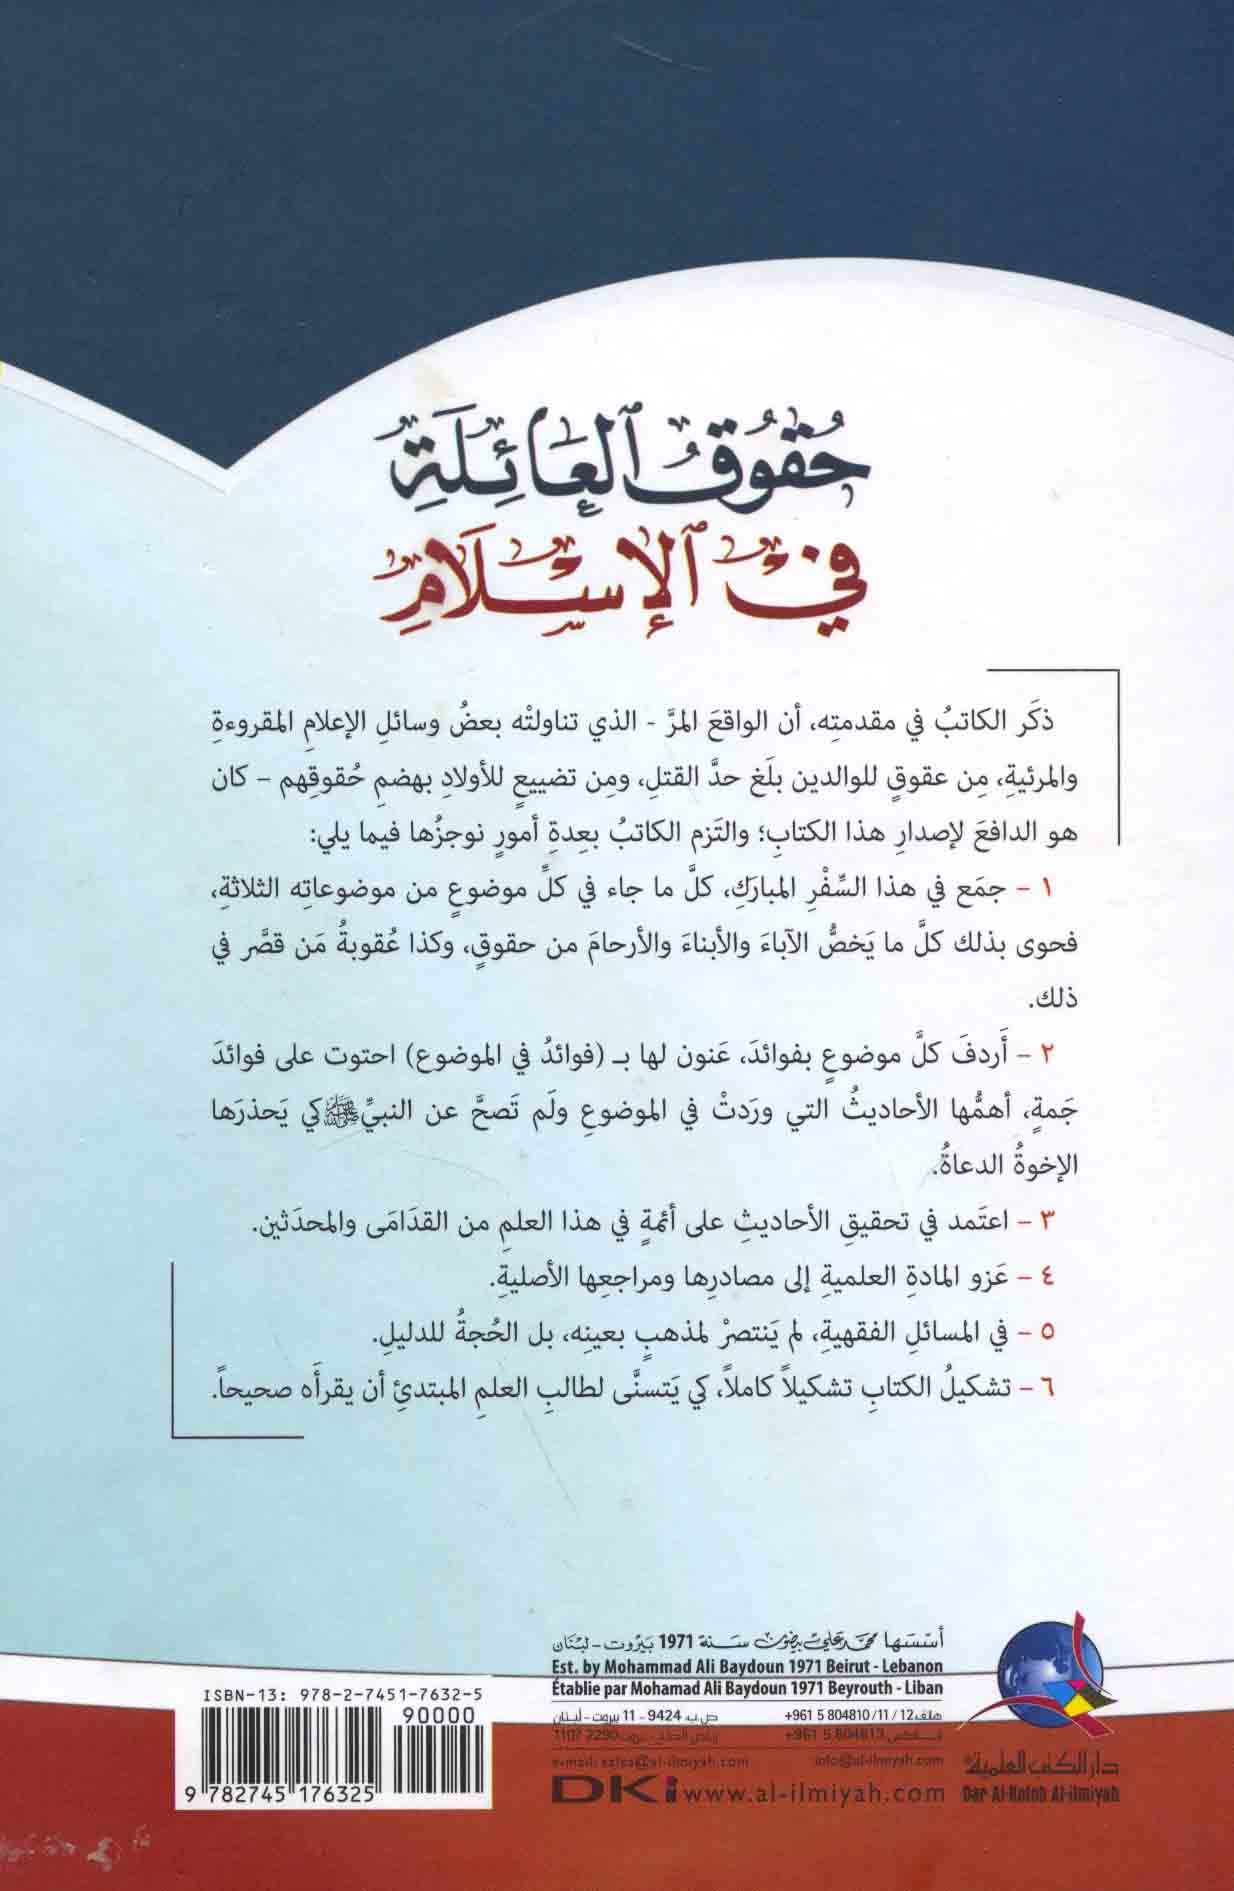 حُقُوقُ ٱلْعَائِلَةِ
فِي ٱلْإِسْلَامِ
ذكَر الكاتبُ في مقدمتِه، أن الواقعَ المرَّ - الذي تناولتْه بعضُ وسائلِ الإعلامِ المقروءةِ
والمرئيةِ، مِن عقوقٍ للوالدين بلَغ حدَّ القتلِ، ومِن تضييعٍ للأولادِ بهضمِ حُقوقِهم – كان
هو الدافعَ لإصدارِ هذا الكتابِ؛ والتَزم الكاتبُ بعِدةِ أمورٍ نوجزُها فيما يلي:
١ - جمَع في هذا السِّفْرِ المبارَكِ، كلَّ ما جاء في كلِّ موضوعٍ من موضوعاتِه الثلاثةِ،
فحوى بذلك كلَّ ما يَخصُّ الآباءَ والأبناءَ والأرحامَ من حقوقٍ، وكذا عُقوبةُ مَن قصَّر في
ذلك.
٢ - أَردفَ كلَّ موضوعٍ بفوائدَ، عَنون لها بـ (فوائدُ في الموضوع) احتوت على فوائدَ
جَمةٍ، أهمُّها الأحاديثُ التي ورَدتْ في الموضوعِ ولَم تَصحَّ عن النبيِّ ﷺ كي يَحذرَها
الإخوةُ الدعاةُ.
٣ - اعتَمد في تحقيقِ الأحاديثِ على أئمةٍ في هذا العلمِ من القدَامَى والمحدَثين.
٤ - عَزو المادةِ العلميةِ إلى مصادرِها ومراجعِها الأصليةِ.
٥ - في المسائلِ الفقهيةِ، لم يَنتصرْ لمذهبٍ بعينِه، بل الحُجةُ للدليلِ.
٦ - تشكيلُ الكتابِ تشكيلاً كاملاً، كي يَتسنَّى لطالبِ العلمِ المبتدئِ أن يقرأَه صحيحاً.
أسسها محمد علي بيضون سنة 1971 بيروت - لبنان
Est. by Mohammad Ali Baydoun 1971 Beirut - Lebanon
Établie par Mohamad Ali Baydoun 1971 Beyrouth - Liban
هاتف +961 5 804810/11/12
فاكس +961 5 804813
ص.ب 11-9424 بيروت - لبنان
رياض الصلح - بيروت 1107 2290
e-mail: sales@al-ilmiyah.com
info@al-ilmiyah.com
DKi www.al-ilmiyah.com
دار الكتب العلمية
Dar Al-Kotob Al-ilmiyah
ISBN-13: 978-2-7451-7632-5
90000
9 782745 176325